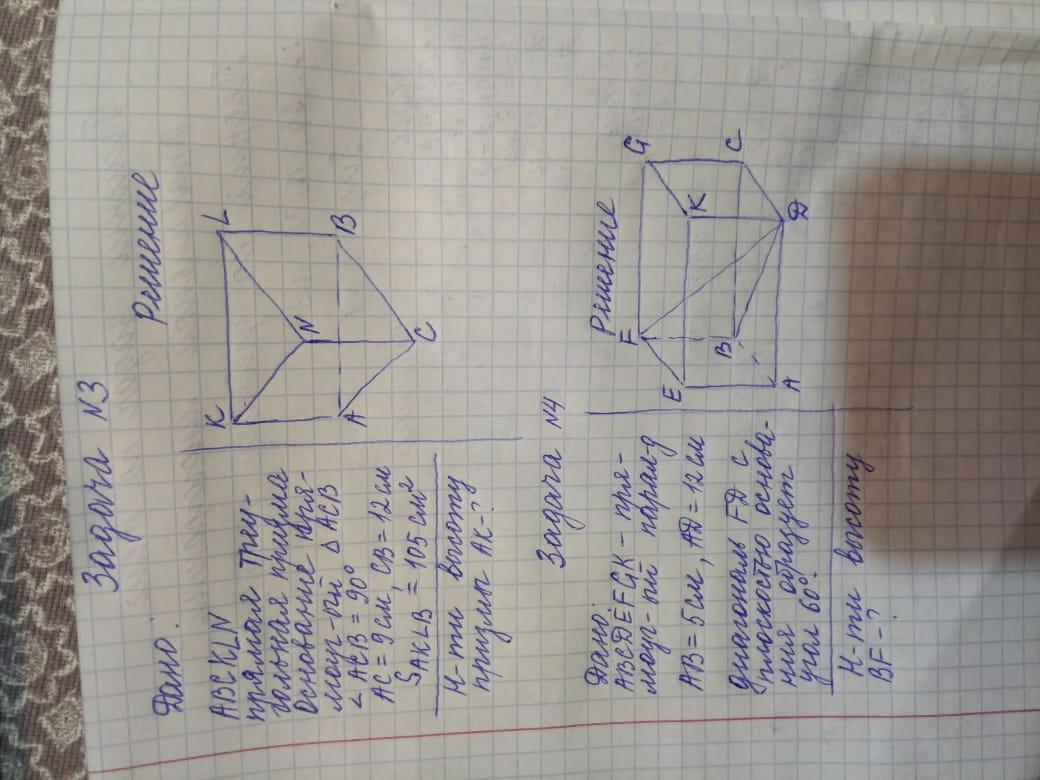 Задача N3
Дано:
Решение
ABCKLN
прямая треу-
гольная призма
Основание пря-
моуг-ый Δ ACB
∠ ACB = 90°
AC = 9 см CB = 12 см
S AKLB = 105 см²
Н-ти высоту
призмы AK-?
K
L
N
A
B
C
Задача N4
Дано:
Решение
ABCDEFGK – пря-
моуг-ый парал-д
AB = 5 см, AD = 12 см
диагональ FD с
плоскостью основа-
ния образует
угол 60°.
Н-ти высоту
BF-?
F
G
E
K
B
C
A
D